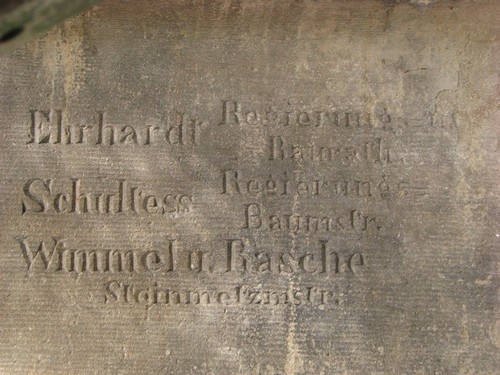 Ehrhardt Regierungs= u.
Baurath.
Schultess Regierungs=
Baumstr.
Wimmel u. Rasche
Steinmetzmstr.